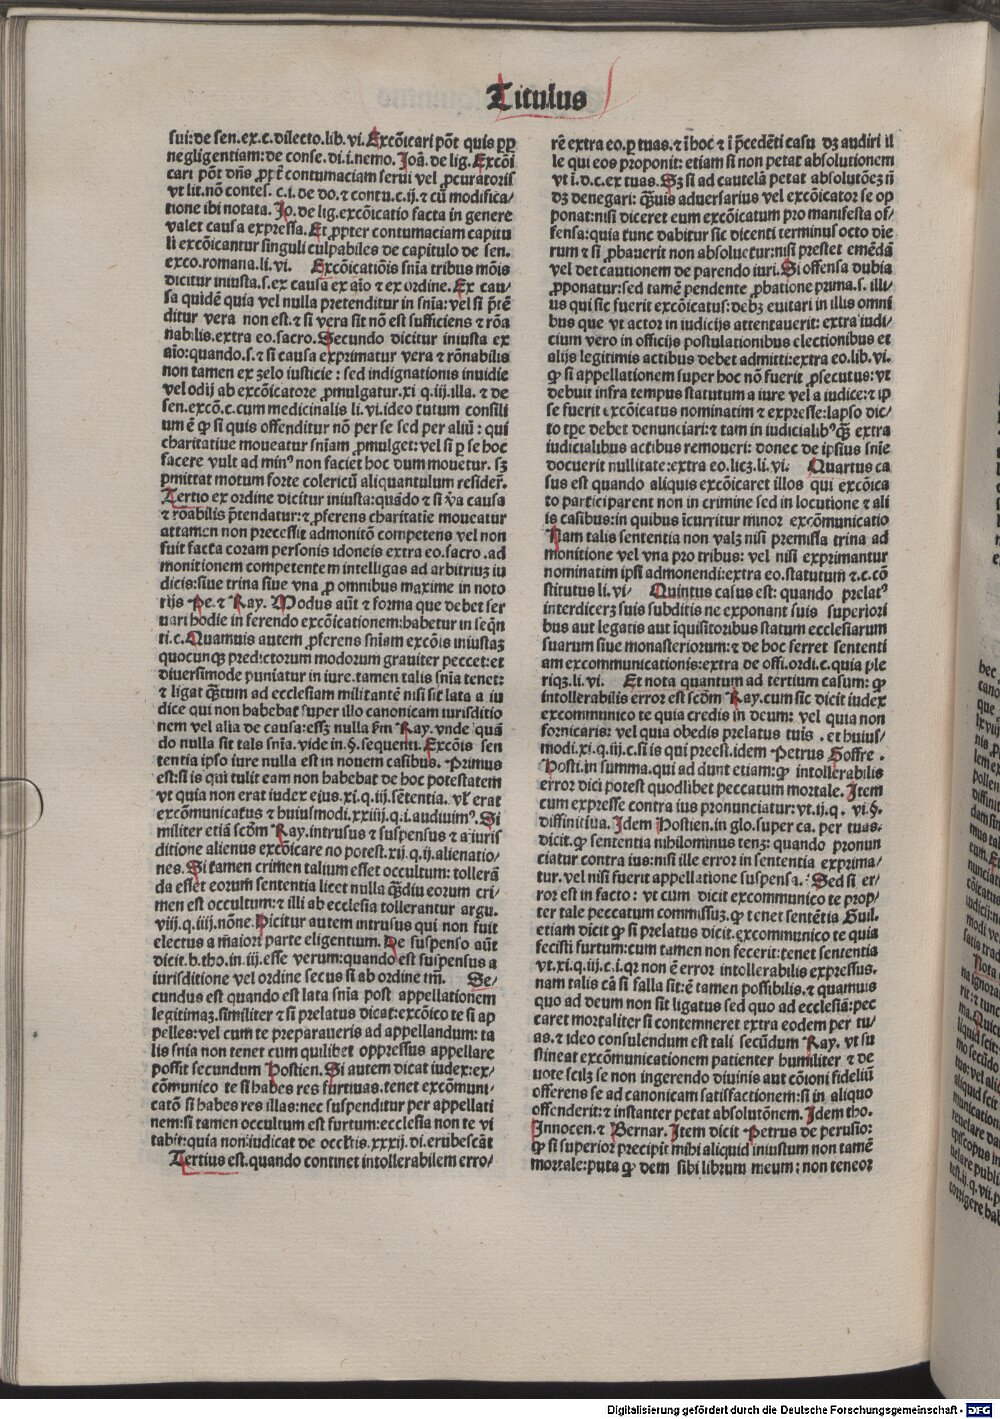 Titulus
sui:de sen.ex.c.dilecto.lib.vi. Excõicari põt quis ꝓp
negligentiam:de conse.di.i.nemo. Joã.de lig. Excõi
cari põt dñs ꝓpt̃ contumaciam serui vel ꝓcuratoris
vt lit.nõ contes. c.i.de do.⁊ contu.c.ij.⁊ cũ modifica/
tione ibi notata. Jo.de lig.excõicatio facta in genere
valet causa expressa. Et ꝓpter contumaciam capitu
li excõicantur singuli culpabiles de capitulo de sen.
exco.romana.li.vi. Excõicatiõis sñia tribus mõis
dicitur iniusta.s.ex causa ex aĩo ⁊ ex ordine. Ex cau/
sa quidẽ quia vel nulla pretenditur in sñia:vel si p̃tẽ
ditur vera non est.⁊ si vera sit nõ est sufficiens ⁊ rõa
nabilis.extra eo.sacro. Secundo dicitur iniusta ex
aĩo:quando.s.⁊ si causa exprimatur vera ⁊ rõnabilis
non tamen ex zelo iusticie : sed indignationis inuidie
vel odij ab excõicatore ꝓmulgatur.xi q.iij.illa. ⁊ de
sen.excõ.c.cum medicinalis li.vi.ideo tutum consili
um ẽ ꝙ si quis offenditur nõ per se sed per aliũ : qui
charitatiue moueatur sñiam ꝓmulget:vel si ꝑ se hoc
facere vult ad minꝰ non faciet hoc dum mouetur. sꝫ
ꝑmittat motum forte colericũ aliquantulum resider̃.
Tertio ex ordine dicitur iniusta:quãdo ⁊ si ṽa causa
⁊ rõabilis p̃tendatur:⁊ ꝓferens charitatiue moueatur
attamen non precessit admonitõ competens vel non
fuit facta coram personis idoneis extra eo.sacro.ad
monitionem competentem intelligas ad arbitriuꝫ iu
dicis:siue trina siue vna ꝓ omnibus maxime in noto
rijs Pe.⁊ Ray. Modus aũt ⁊ forma que debet ser
uari hodie in ferendo excõicationem:habetur in seq̃n
ti.c. Quamuis autem ꝓferens sñiam excõis iniustaꝫ
quocunqꝫ predictorum modorum grauiter peccet:et
diuersimode puniatur in iure.tamen talis sñia tenet:
⁊ ligat q̃tum ad ecclesiam militantẽ nisi sit lata a iu
dice qui non habebat super illo canonicam iurisdictio
nem vel alia de causa:essꝫ nulla ẜm Ray. vnde quã
do nulla sit tals sñia.vide in.§.sequenti. Excõis sen
tentia ipso iure nulla est in nouem casibus. Primus
est:si is qui tulit eam non habebat de hoc potestatem
vt quia non erat iudex eius.xi.q.iij.sẽtentia. vl̃ erat
excõmunicatus ⁊ huiusmodi.xxiiij.q.i.audiuimꝰ. Si
militer etiã scõm Ray.intrusus ⁊ suspensus ⁊ a iuris
ditione alienus excõicare no potest.xij.q.ij.alienatio/
nes. Si tamen crimen talium esset occultum: tollerã
da esset eorum sententia licet nulla q̃diu eorum cri/
men est occultum:⁊ illi ab ecclesia tollerantur argu.
viij.q.iiij.nõne. Dicitur autem intrusus qui non fuit
electus a maiori parte eligentium. De suspenso aũt
dicit.b.tho.in.iij.esse verum:quando est suspensus a
iurisditione vel ordine secus si ab ordine tm̃. Se/
cundus est quando est lata sñia post appellationem
legitimaꝫ.similiter ⁊ si prelatus dicat:excõico te si ap
pelles:vel cum te preparaueris ad appellandum: ta
lis sñia non tenet cum quilibet oppressus appellare
possit secundum Hostien. Si autem dicat iudex:ex/
cõmunico te si habes res furtiuas.tenet excõmuni/
catõ si habes res illas:nec suspenditur per appellati
nem:si tamen occultum est furtum:ecclesia non te vi
tabit:quia non iudicat de occltis.xxxij.di.erubescãt
Tertius est.quando continet intollerabilem erro/
rẽ extra eo.ꝑ tuas.⁊ ĩ hoc ⁊ ĩ p̃cedẽti casu dꝫ audiri il
le qui eos proponit: etiam si non petat absolutionem
vt ĩ.d.c.ex tuas. Sꝫ si ad cautelã petat absolutõeꝫ ñ
dꝫ denegari: q̃uis aduersarius vel excõicator se op
ponat:nisi diceret eum excõicatum pro manifesta of/
fensa:quia tunc dabitur sic dicenti terminus octo die
rum ⁊ si ꝓbauerit non absoluetur:nisi prestet emẽdã
vel det cautionem de parendo iuri. Si offensa dubia
ꝓponatur:sed tamẽ pendente ꝓbatione prima.s. illi/
us qui sic fuerit excõicatus:debꝫ euitari in illis omni
bus que vt actor in iudicijs attentauerit: extra iudi/
cium vero in officijs postulationibus electionibus et
alijs legitimis actibus debet admitti:extra eo.lib.vi.
ꝙ si appellationem super hoc nõ fuerit ꝓsecutus: vt
debuit infra tempus statutum a iure vel a iudice:⁊ ip
se fuerit excõicatus nominatim ⁊ expresse:lapso dic/
to tp̃e debet denunciari:⁊ tam in iudicialibꝰ q̃ extra
iudicialibus actibus remoueri: donec de ipsius sñie
docuerit nullitate:extra eo.licꝫ.li.vi. Quartus ca
sus est quando aliquis excõicaret illos qui excõica
to participarent non in crimine sed in locutione ⁊ ali
is casibus:in quibus ĩcurritur minor excõmunicatio
Nam talis sententia non valꝫ nisi premissa trina ad
monitione vel vna pro tribus: vel nisi exprimantur
nominatim ipsi admonendi:extra eo.statutum ⁊.c.cõ
stitutus li.vi/ Quintus casus est: quando prelatꝰ
interdiceꝫ suis subditis ne exponant suis superiori
bus aut legatis aut ĩquisitoribus statum ecclesiarum
suarum siue monasteriorum:⁊ de hoc ferret sententi
am excommunicationis:extra de offi.ordi.c.quia ple
riqꝫ.li.vi. Et nota quantum ad tertium casum: ꝙ
intollerabilis error est scõm Ray.cum sic dicit iudex
excommunico te quia credis in deum: vel quia non
fornicaris: vel quia obedis prelatus tuis . et huius/
modi.xi.q.iij.c.si is qui preest.idem Petrus Goffre.
Hosti.in summa.qui addunt etiam:ꝙ intollerabilis
error dici potest quodlibet peccatum mortale. Item
cum expresse contra ius pronunciatur:vt.ij.q. vi.§.
diffinitiua. Idem Hostien.in glo.super ca. per tuas.
dicit.ꝙ sententia nihilominus tenꝫ: quando pronun
ciatur contra ius:nisi ille error in sententia exprima/
tur.vel nisi fuerit appellatione suspensa. Sed si er/
ror est in facto : vt cum dicit excommunico te prop/
ter tale peccatum commissuꝫ.ꝙ tenet sentẽtia Guil.
etiam dicit ꝙ si prelatus dicit.excommunico te quia
fecisti furtum:cum tamen non fecerit:tenet sententia
vt.xi.q.iij.c.i.qꝛ non ẽ error intollerabilis expressus.
nam talis cã si falla sit:ẽ tamen possibilis.⁊ quamuis
quo ad deum non sit ligatus sed quo ad ecclesiã:pec
caret mortaliter si contemneret extra eodem per tu/
as.⁊ ideo consulendum est tali secũdum Ray. vt su
stineat excõmunicationem patienter humiliter ⁊ de
uote scilꝫ se non ingerendo diuinis aut cõioni fideliũ
offerens se ad canonicam satisfactionem:si in aliquo
offenderit:⁊ instanter petat absolutõnem. Idem tho.
Innocen.⁊ Bernar. Item dicit Petrus de perusio:
ꝙ si superior precipit mihi aliquid iniustum non tamẽ
mortale:puta ꝙ dem sibi librum meum: non teneor
Digitalisierung gefördert durch die Deutsche Forschungsgemeinschaft - DFG